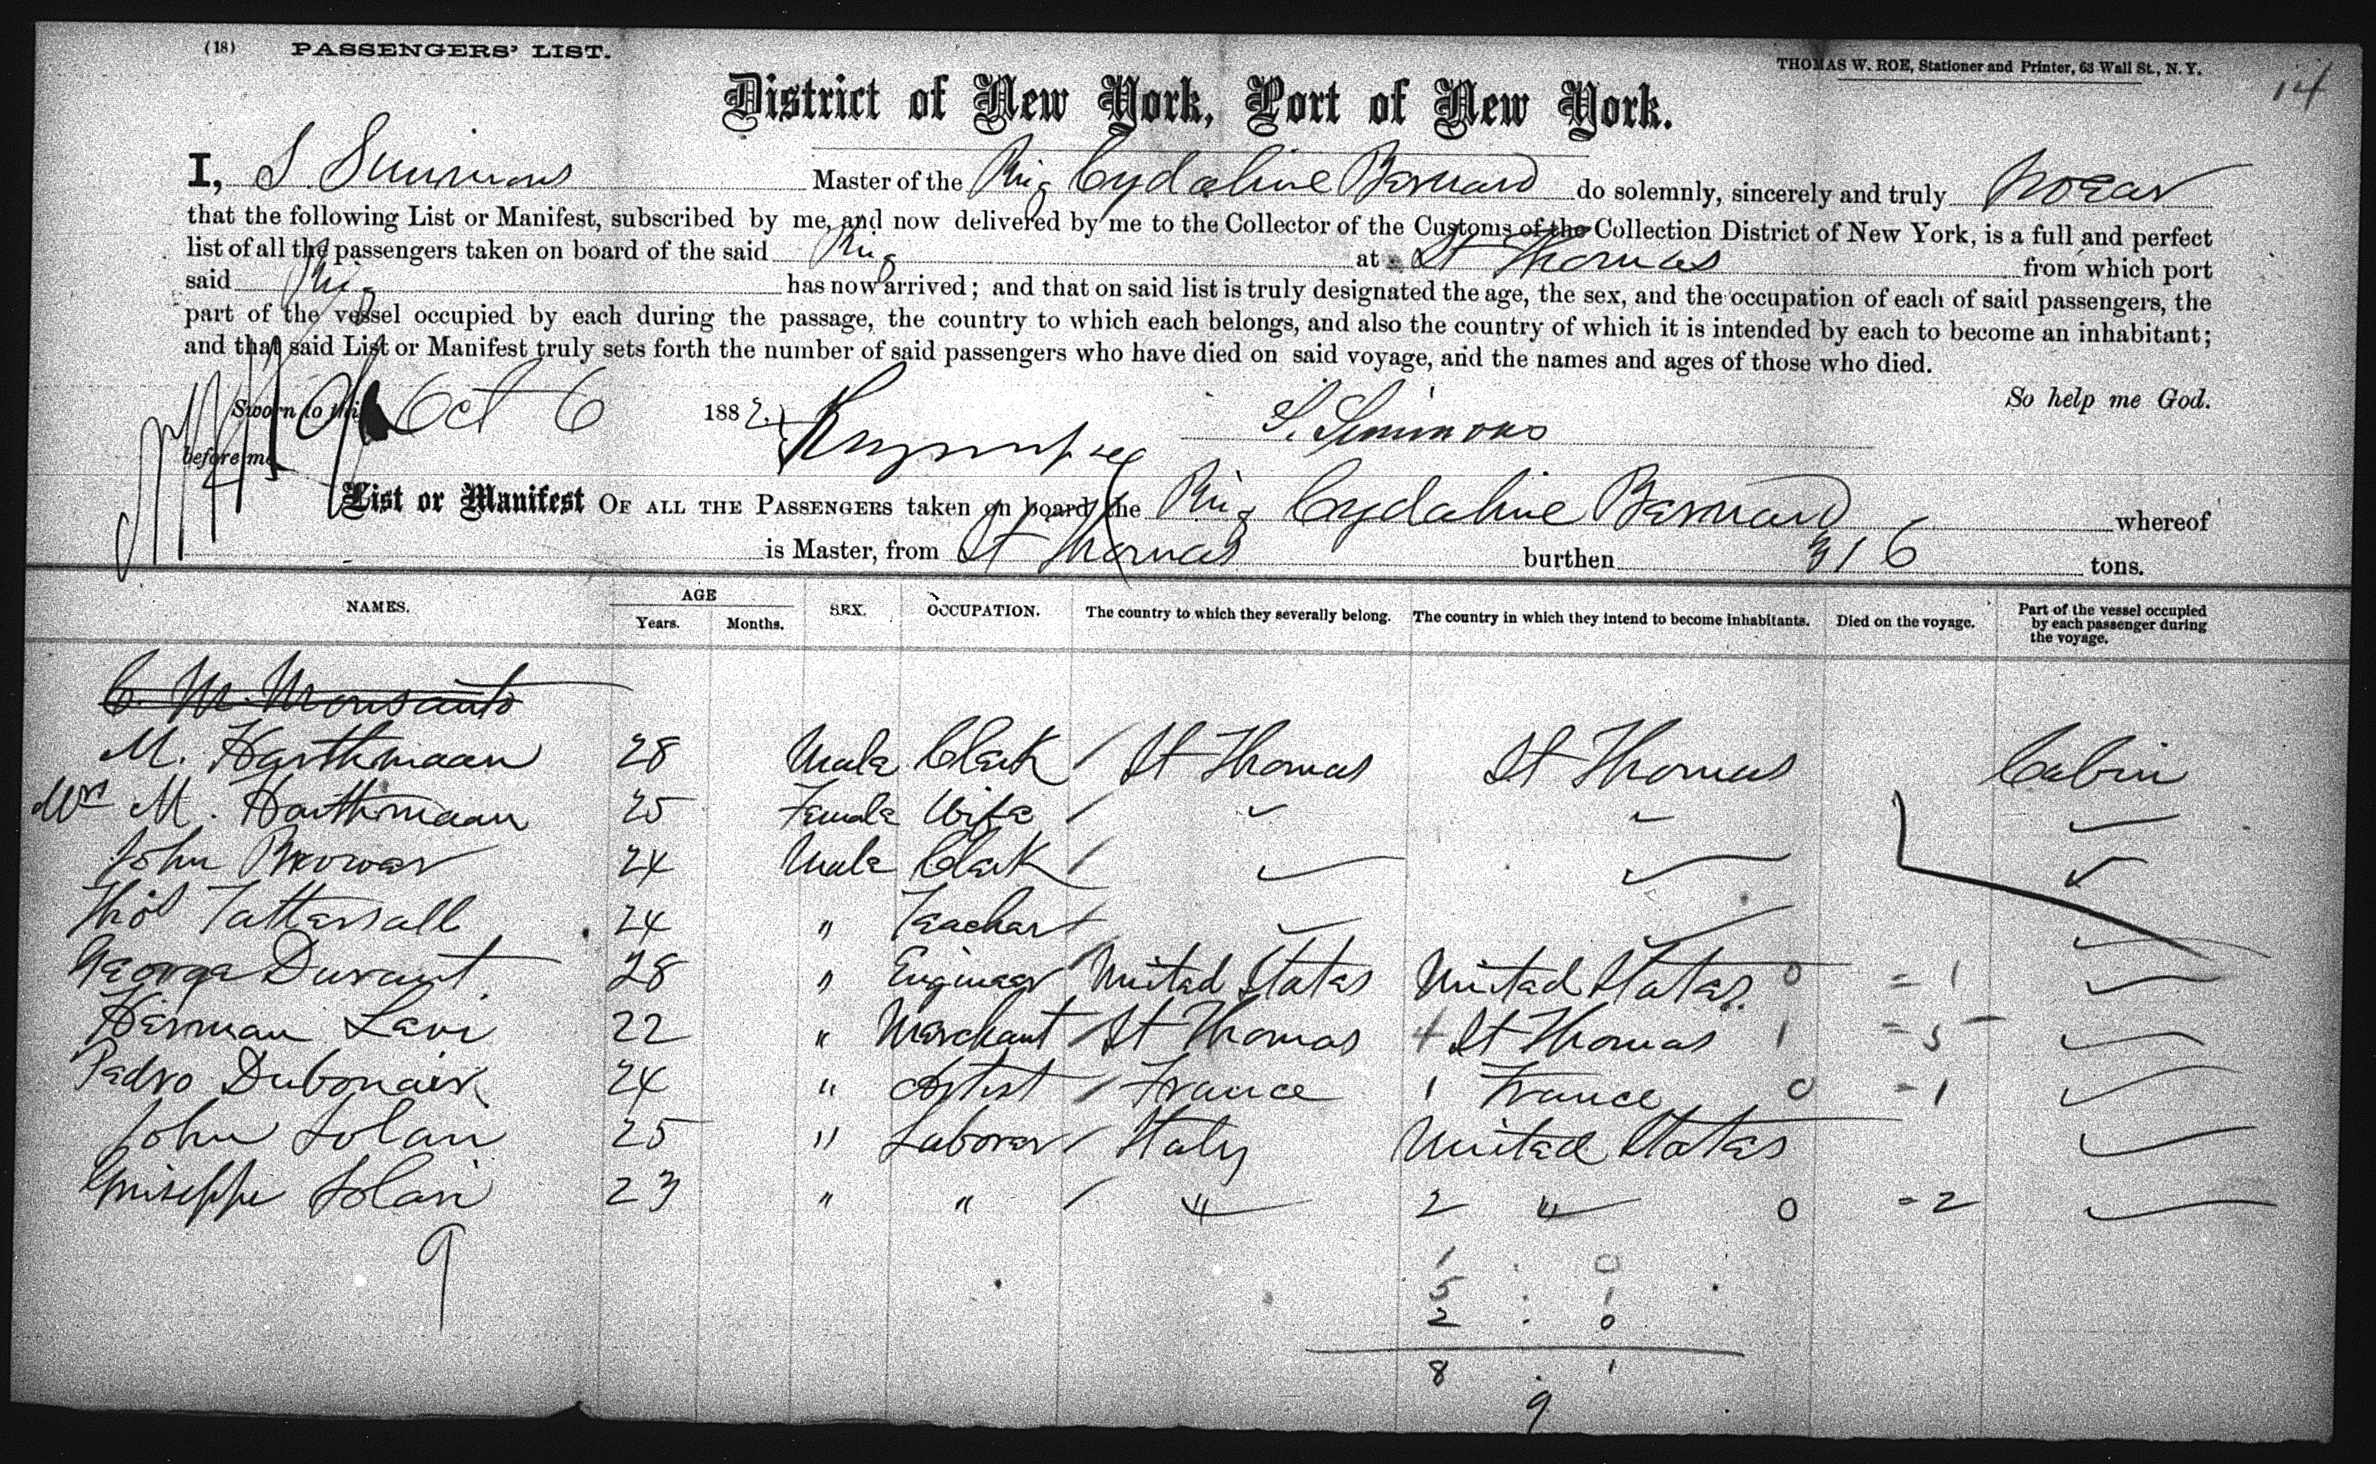 (18) PASSENGERS' LIST.
THOMAS W. ROE, Stationer and Printer, 63 Wall St., N. Y.
14
District of New York, Port of New York.
I, S. Simmons Master of the Brig Cydaline Bernard do solemnly, sincerely and truly swear
that the following List or Manifest, subscribed by me, and now delivered by me to the Collector of the Customs of the Collection District of New York, is a full and perfect
list of all the passengers taken on board of the said Brig at St Thomas from which port
said Brig has now arrived; and that on said list is truly designated the age, the sex, and the occupation of each of said passengers, the
part of the vessel occupied by each during the passage, the country to which each belongs, and also the country of which it is intended by each to become an inhabitant;
and that said List or Manifest truly sets forth the number of said passengers who have died on said voyage, and the names and ages of those who died.
So help me God.
Sworn to this Oct 6 1882.
S. Simmons
before me
List or Manifest OF ALL THE PASSENGERS taken on board the Brig Cydaline Bernard whereof
is Master, from St Thomas burthen 316 tons.
NAMES. AGE Years. Months. SEX. OCCUPATION. The country to which they severally belong. The country in which they intend to become inhabitants. Died on the voyage. Part of the vessel occupied by each passenger during the voyage.
C. M. Monsanto
M. Harthmaan 28 Male Clerk / St Thomas St Thomas Cabin
Mrs M. Harthmaan 25 Female Wife /
John Brower 24 Male Clerk /
Thos Tattersall 24 " Teacher /
George Durant 28 " Engineer / United States United States 0 = 1
Herman Levi 22 " Merchant / St Thomas 4 St Thomas 1 = 5
Pedro Dubonair 24 " Artist / France 1 France 0 = 1
John Solari 25 " Laborer / Italy United States
Guiseppe Solari 23 " " / " 2 " 0 = 2
9
1 . 0
5 . 1
2 . 0
8 . 1
9